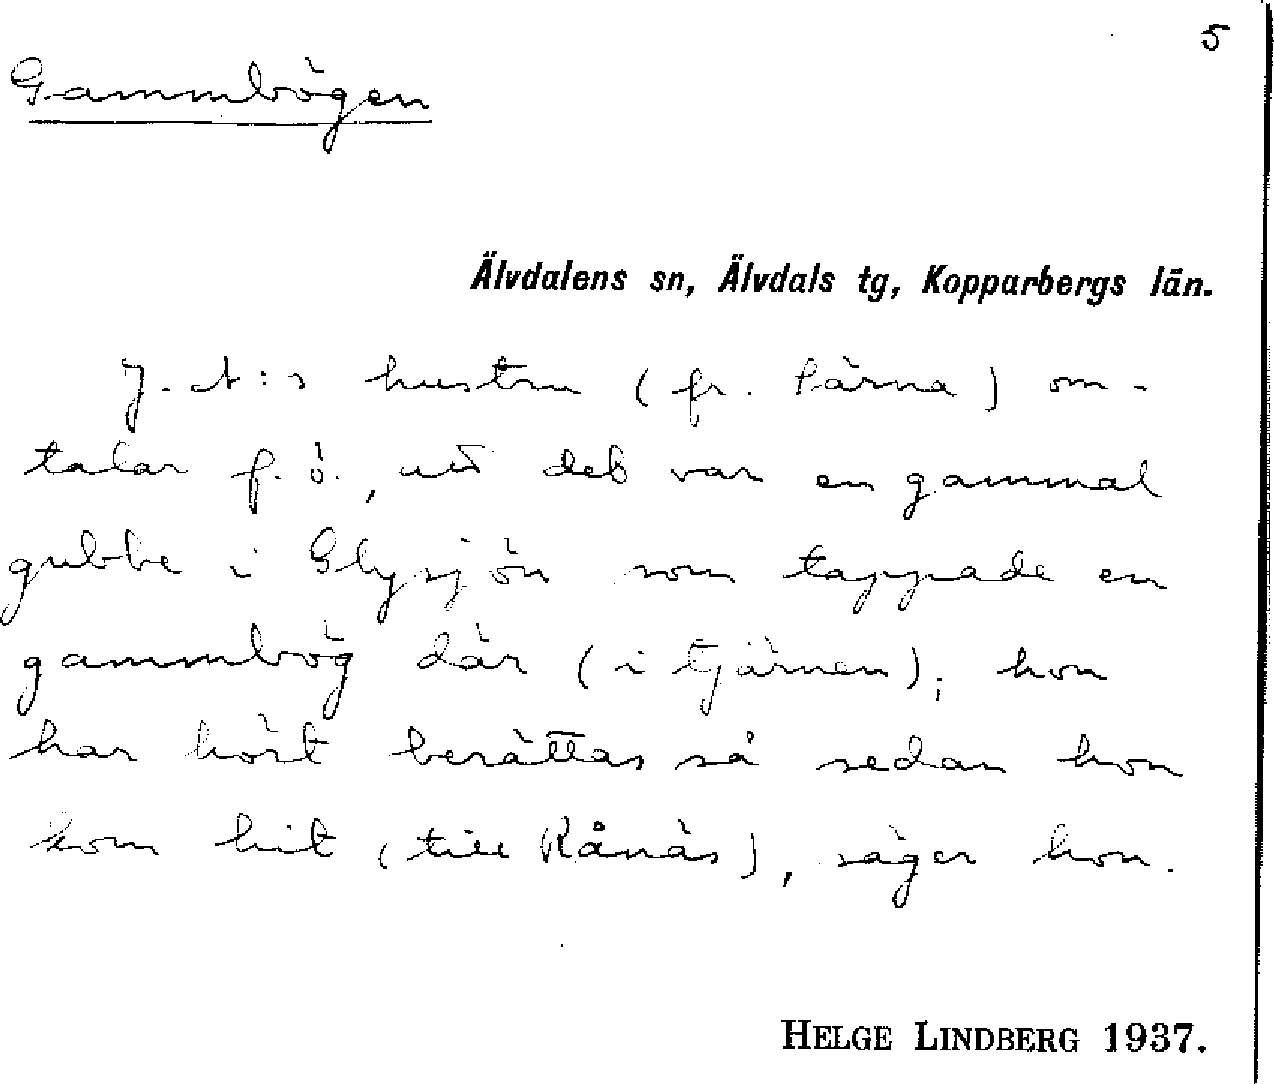 5
Gammbögen
Älvdalens sn, Älvdals tg, Kopparbergs län.
J. A:s hustru (fr. Särna) om-
talar f.ö., att det var en gammal
gubbe i Glysjön som tappade en
gammbög där (i tjärnen); hon
har hört berättas så sedan hon
kom hit (till Rånäs), säger hon.
HELGE LINDBERG 1937.